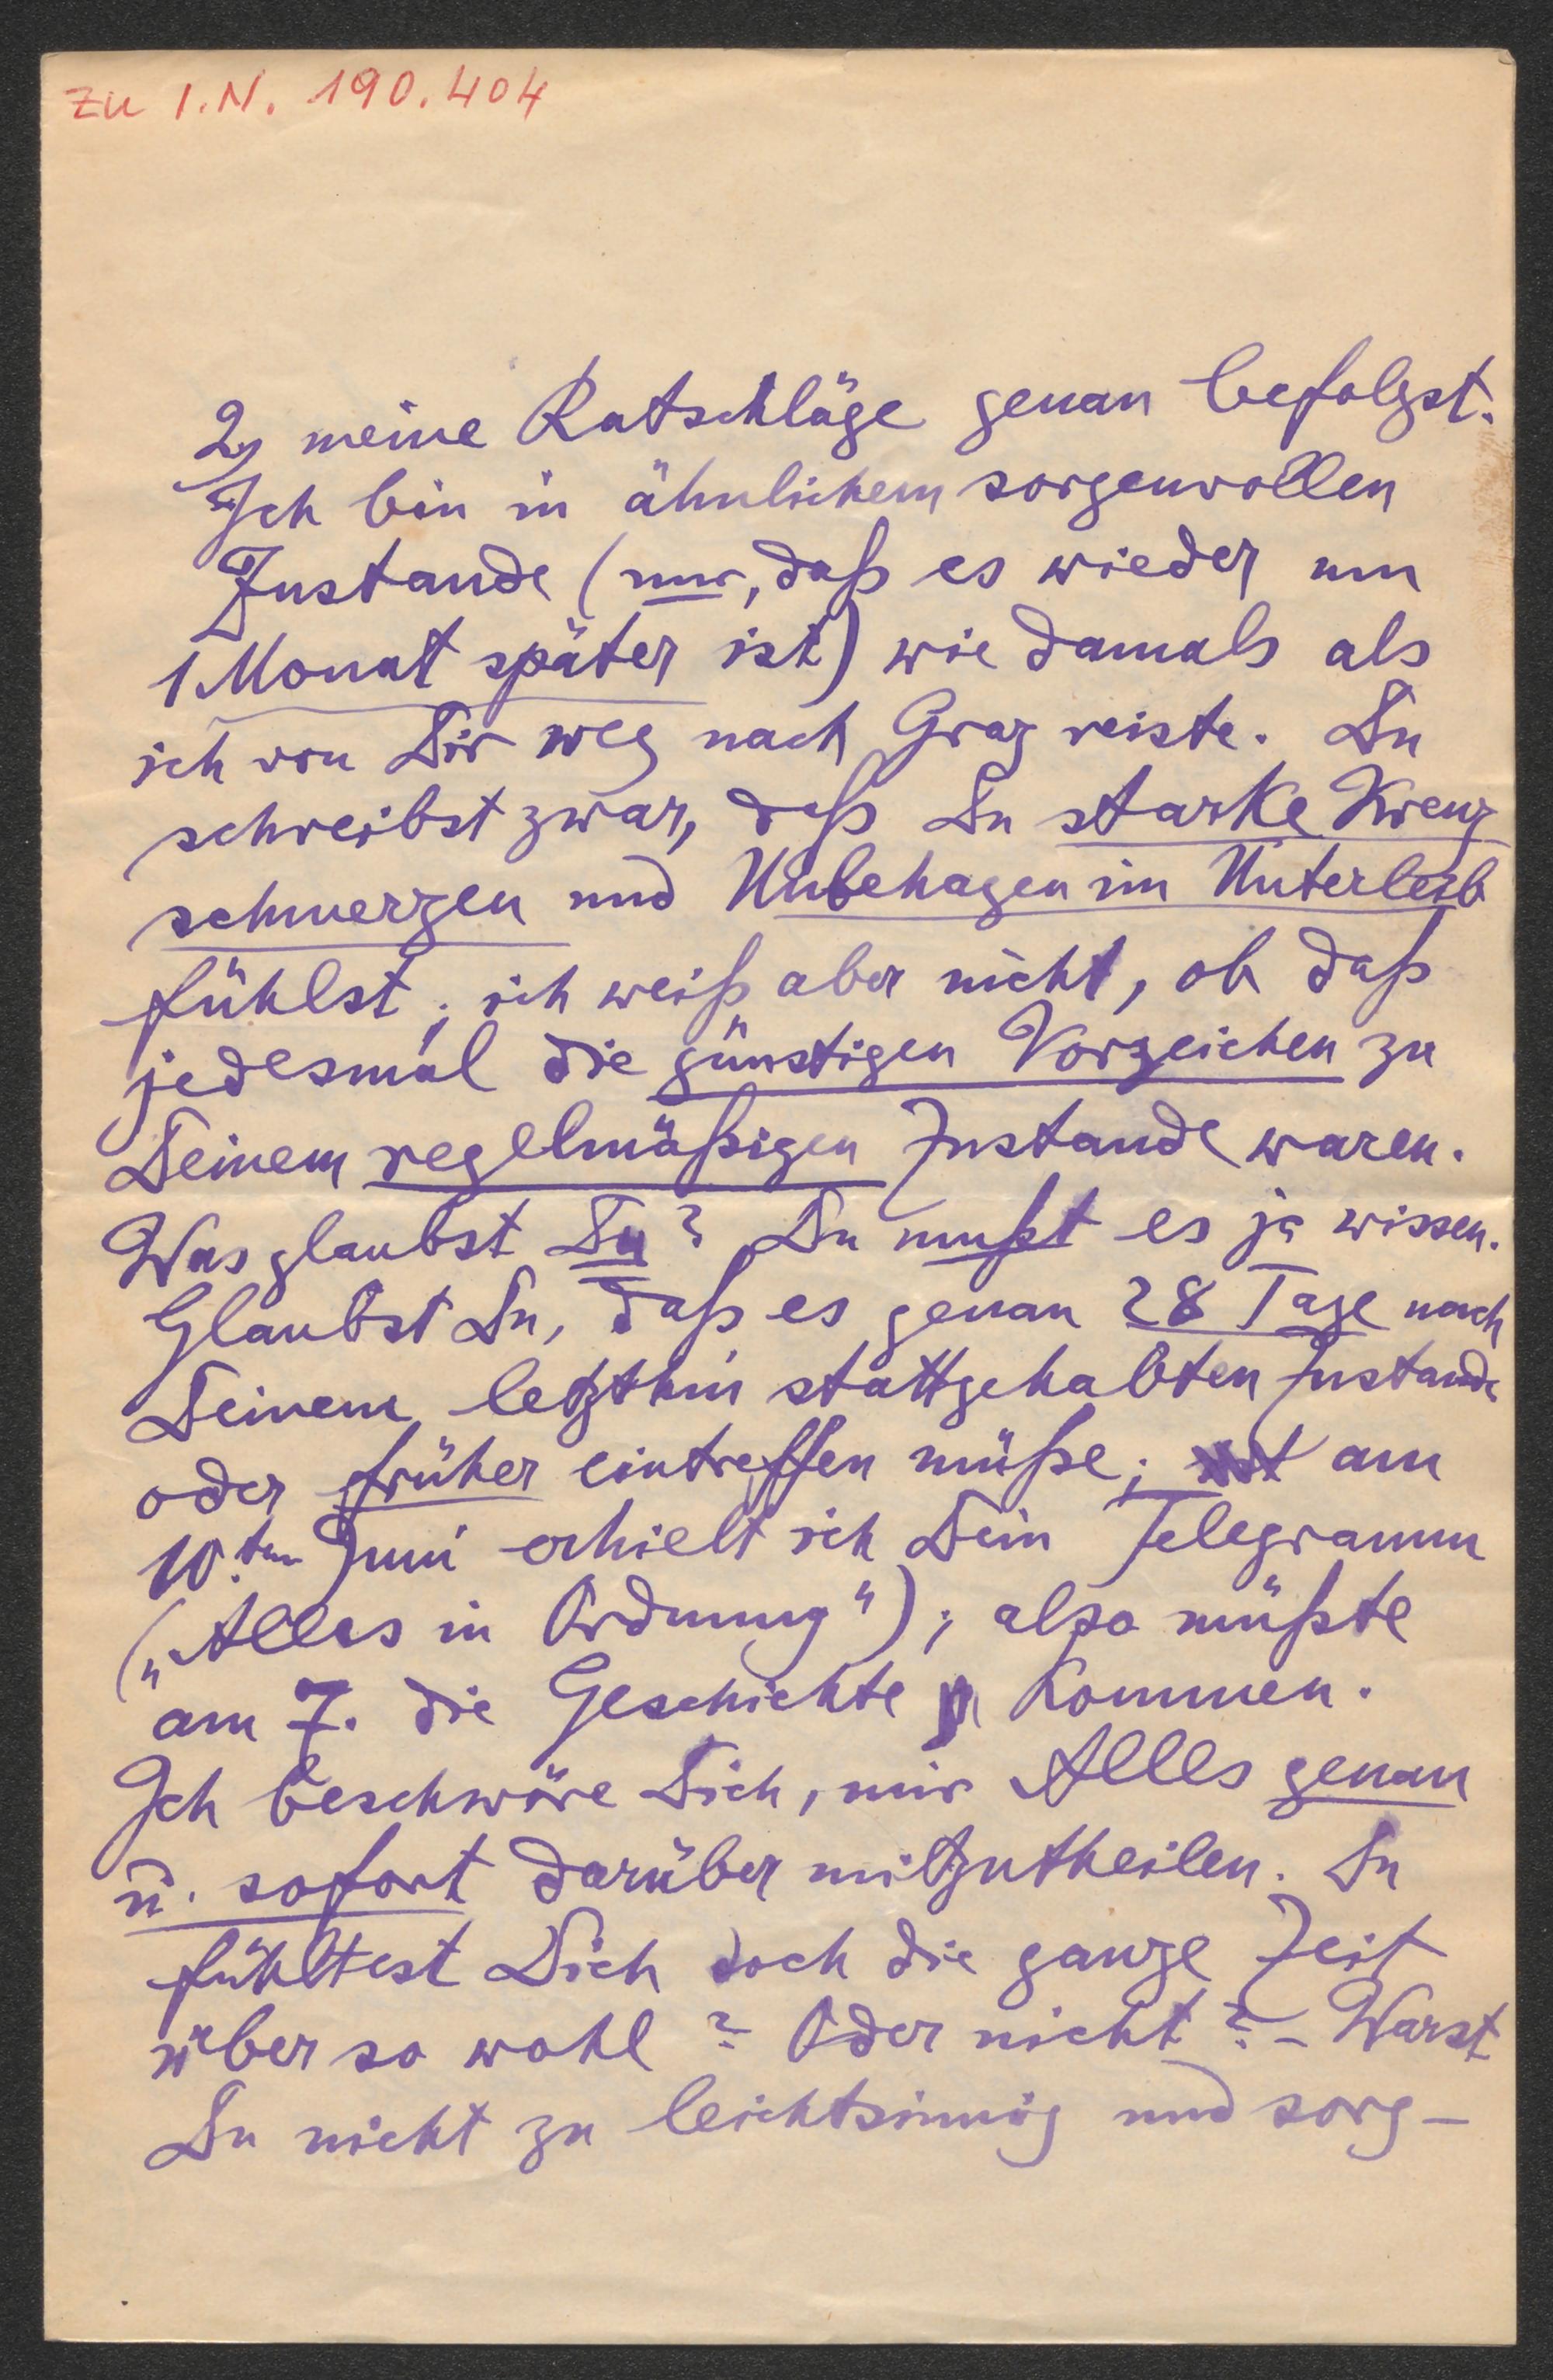 zu I.N. 190.404
2) meine Ratschläge genau befolgst.
Ich bin in ähnlichem sorgenvollen
Zustande (nur, daß es wieder um
1 Monat später ist) wie damals als
ich von Dir weg nach Graz reiste. Du
schreibst zwar, daß Du starke Kreuz
schmerzen und Unbehagen im Unterleib
fühlst; ich weiß aber nicht, ob daß
jedesmal die günstigen Vorzeichen zu
Deinem regelmäßigen Zustande waren.
Was glaubst Du? Du mußt es ja wissen.
Glaubst Du, daß es genau 28 Tage nach
Deinem letzthin stattgehabten Zustande
oder früher eintreffen müße; am
10.ten Juni erhielt ich Dein Telegramm
(„Alles in Ordnung"); also müßte
am 7. die Geschichte kommen.
Ich beschwöre Dich, mir Alles genau
u. sofort darüber mitzutheilen. Du
fühltest Dich doch die ganze Zeit
über so wohl? Oder nicht? – Warst
Du nicht zu leichtsinnig und sorg-